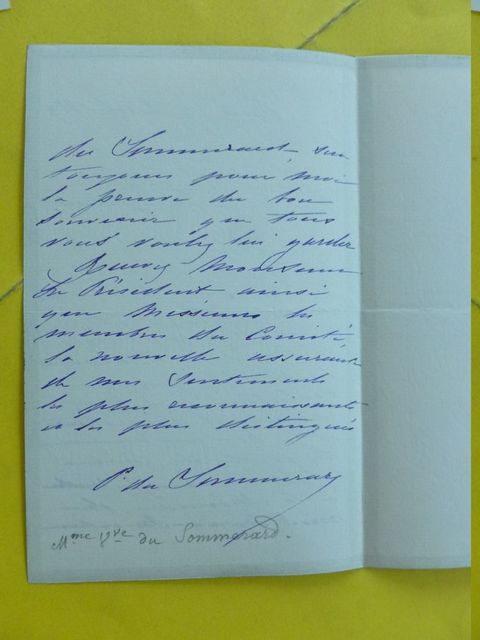 du Sommerard sera
toujours pour moi
la preuve du bon
souvenir que tous
vous voulez lui garder
Recevez Monsieur
Le Président ainsi
que Messieurs les
membres du Comité
la nouvelle assurance
de mes sentiments
les plus reconnaissants
et les plus distingués
P. du Sommerard
Mme Vve du Sommerard.